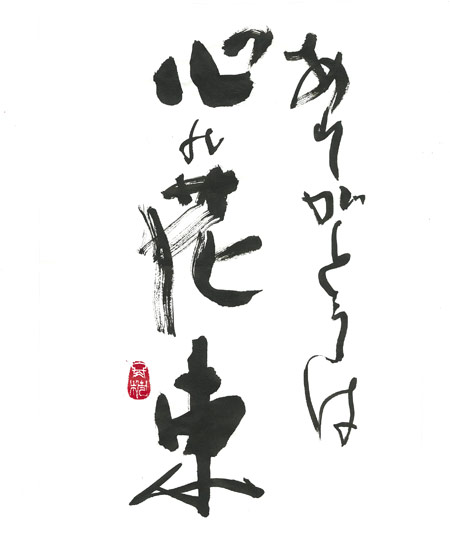 ありがとうは
心の花束